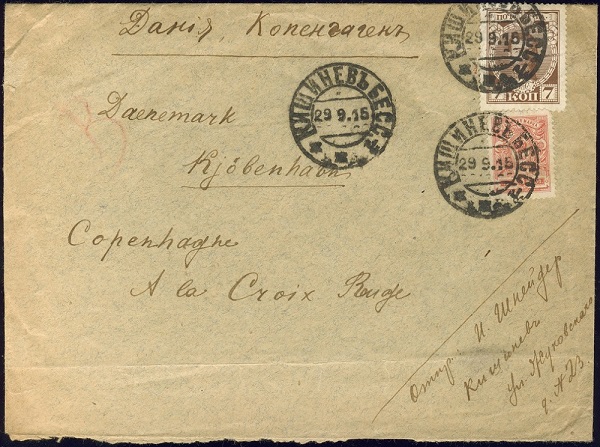 Данія, Копенгагенъ
КИШИНЕВЪ БЕСС.
29 9.15
7 КОП 7
КИШИНЕВЪ БЕСС.
29 9.15
Daenemark
КИШИНЕВЪ БЕСС.
29 9.15
Kjöbenhavn
Copenhagne
A la Croix Rouge
Отпр. И. Шнейдер
Кишинев
ул. Жуковскаго
д. № 23.